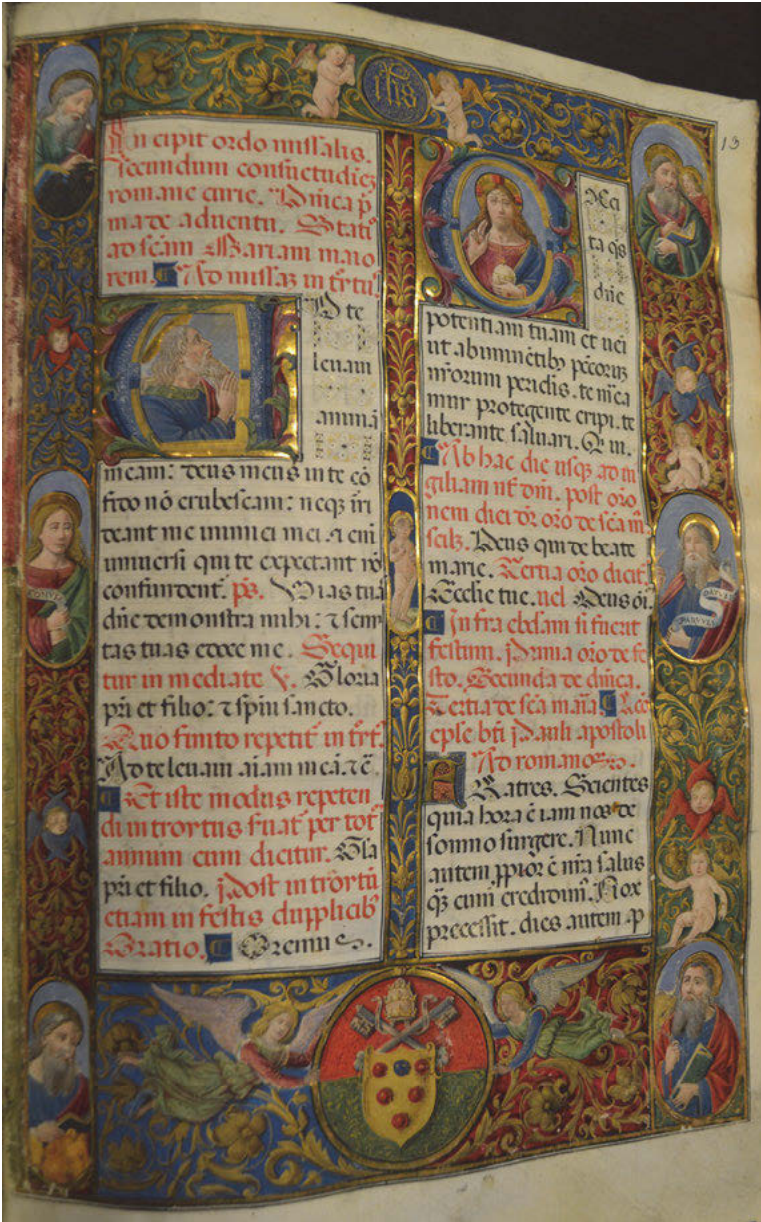 13
yhs
Incipit ordo missalis.
secundum consuetudinez
romane curie. Dnica p
ma de aduentu. Statio
ad scam Mariam maio
rem. Ad missaz introitus
D te
leuaui
animā
meam: deus meus in te cō
fido nō erubescam: neqz irri
deant me inimici mei. et eni
uniuersi qui te expectant nō
confundent. ps. Vias tuas
dñe demonstra mihi: et semi
tas tuas edoce me. Sequi
tur inmediate V. Gloria
pri et filio: et spiu sancto.
Quo finito repetit introit.
Ad te leuaui aiam meā. etc
Et iste modus repeten
di introitus fuat per totū
annum cum dicitur. Gla
pri et filio. Post introitū
etiam in festis dupplicib
Oratio. Oremus.
xci
ta qs
dñe
potentiam tuam et ueni
ut ab iminētibz pctorum
nrorum periclis. te mea
mur protegente eripi. te
liberante saluari. Q ui.
Ab hac die usqz ad ui
giliam nat dni. post oro
nem diei dr oro de sca m
Deus qui de beate
marie. Tertia oro dicit
Ecclie tue. uel Deus oi.
Infra ebdam si fuerit
festum. Prima oro de fe
sto. Secunda de dnica.
Tertia de sca maria
epse bti Pauli apostoli
Ad romanos.
Ratres. Scientes
quia hora ē iam nos de
somno surgere. Nunc
autem ppior ē nra salus
qz cum credidim. Nox
precessit. dies autem ap
PARVVLVS
DATVS